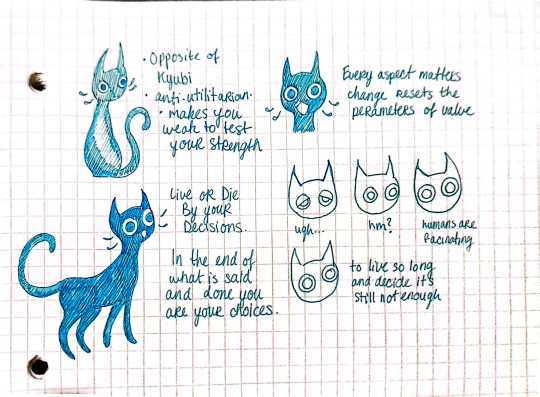 • Opposite of
Kyubi
• anti-utilitarian.
• makes you
weak to test
your strength
Every aspect matters
change resets the
perameters of value
Live or Die
By your
Decisions.
In the end of
what is said
and done you
are your choices.
ugh...
hm?
humans are
facinating
to live so long
and decide it's
still not enough